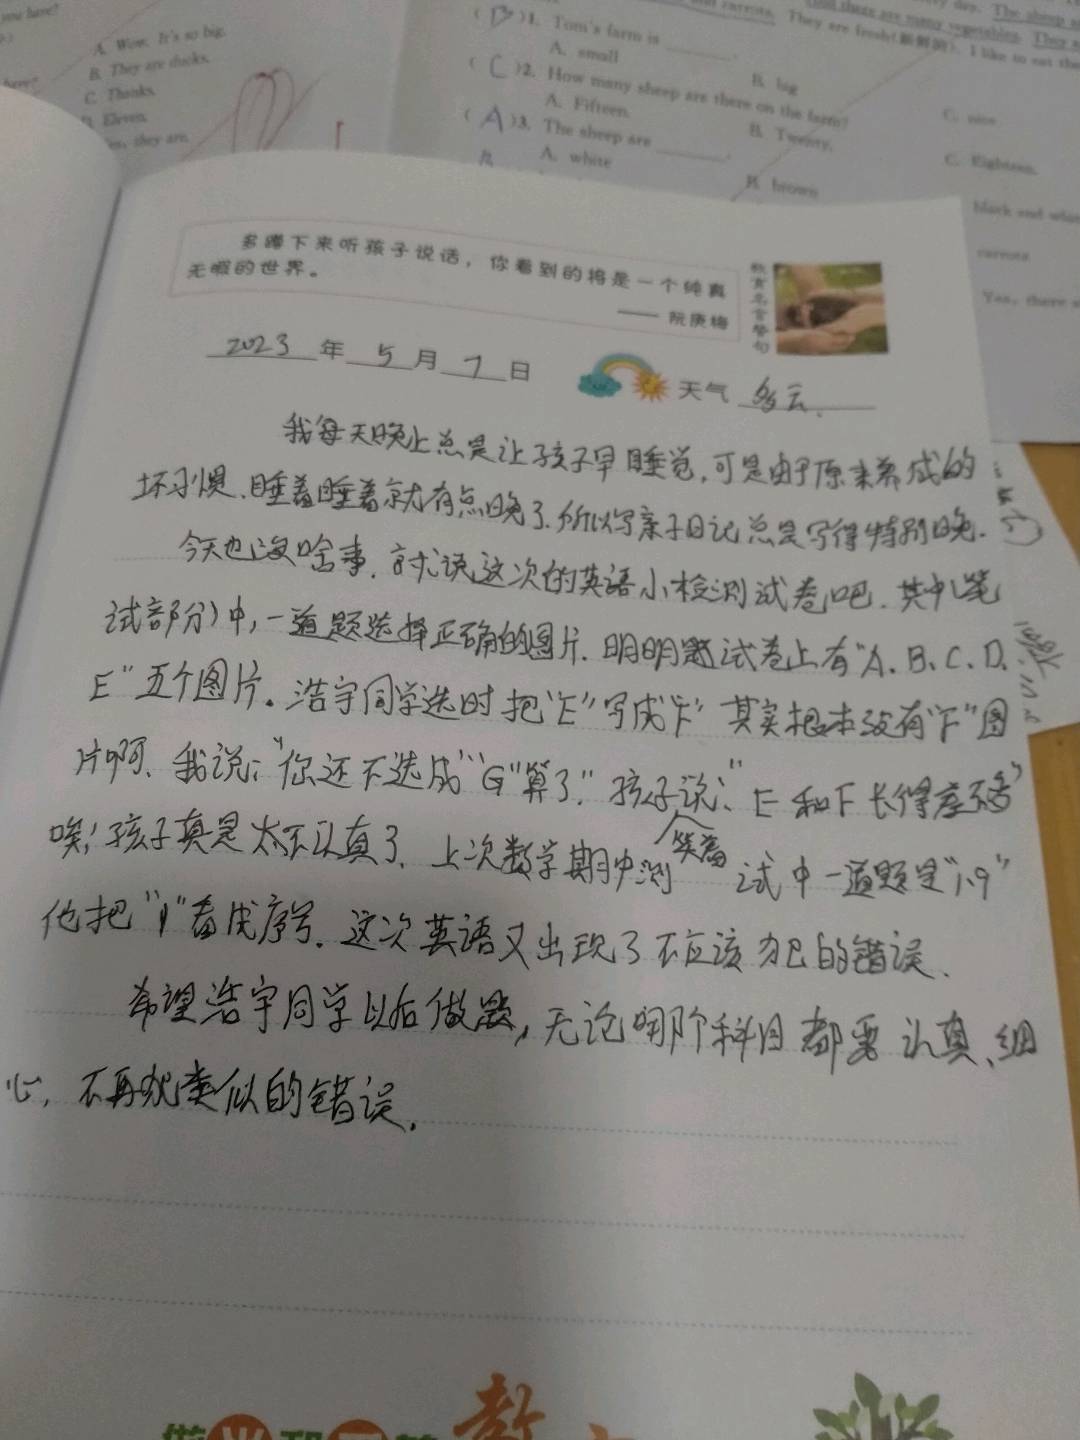 you have?
A. Wow. It's so big.
B. They are ducks.
C. Thanks.
D. Eleven.
they are.
They are fresh(新鲜的). I like to eat the
( B )1. Tom's farm is ______.
A. small
B. big
C. nice
( C )2. How many sheep are there on the farm?
A. Fifteen.
B. Twenty.
C. Eighteen.
( A )3. The sheep are ______.
A. white
B. brown
black and white
carrots
Yes, there
多蹲下来听孩子说话，你看到的将是一个纯真
无暇的世界。
—— 阮庚梅
教育名言警句
2023 年 5 月 7 日
天气 多云.
我每天晚上总是让孩子早睡觉,可是由于原来养成的
坏习惯、睡着睡着就有点晚了.所以写亲子日记总是写得特别晚.
今天也没啥事,就说这次的英语小检测试卷吧.其中(笔
试部分)中,一道题选择正确的图片.明明试卷上有"A.B.C.D.
E"五个图片。浩宇同学选时把"E"写成"F"其实根本没有"F"图
片啊.我说:"你还不选成"G"算了."孩子笑着说:"E和F长得差不多"
唉!孩子真是太不认真了.上次数学期中测试中一道题是"1.9"
他把"1"看成序号.这次英语又出现了不应该犯的错误.
希望浩宇同学以后做题,无论哪个科目都要认真、细
心,不再犯类似的错误.